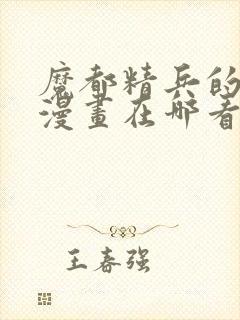 魔都精兵的
漫畫在哪看
王春强